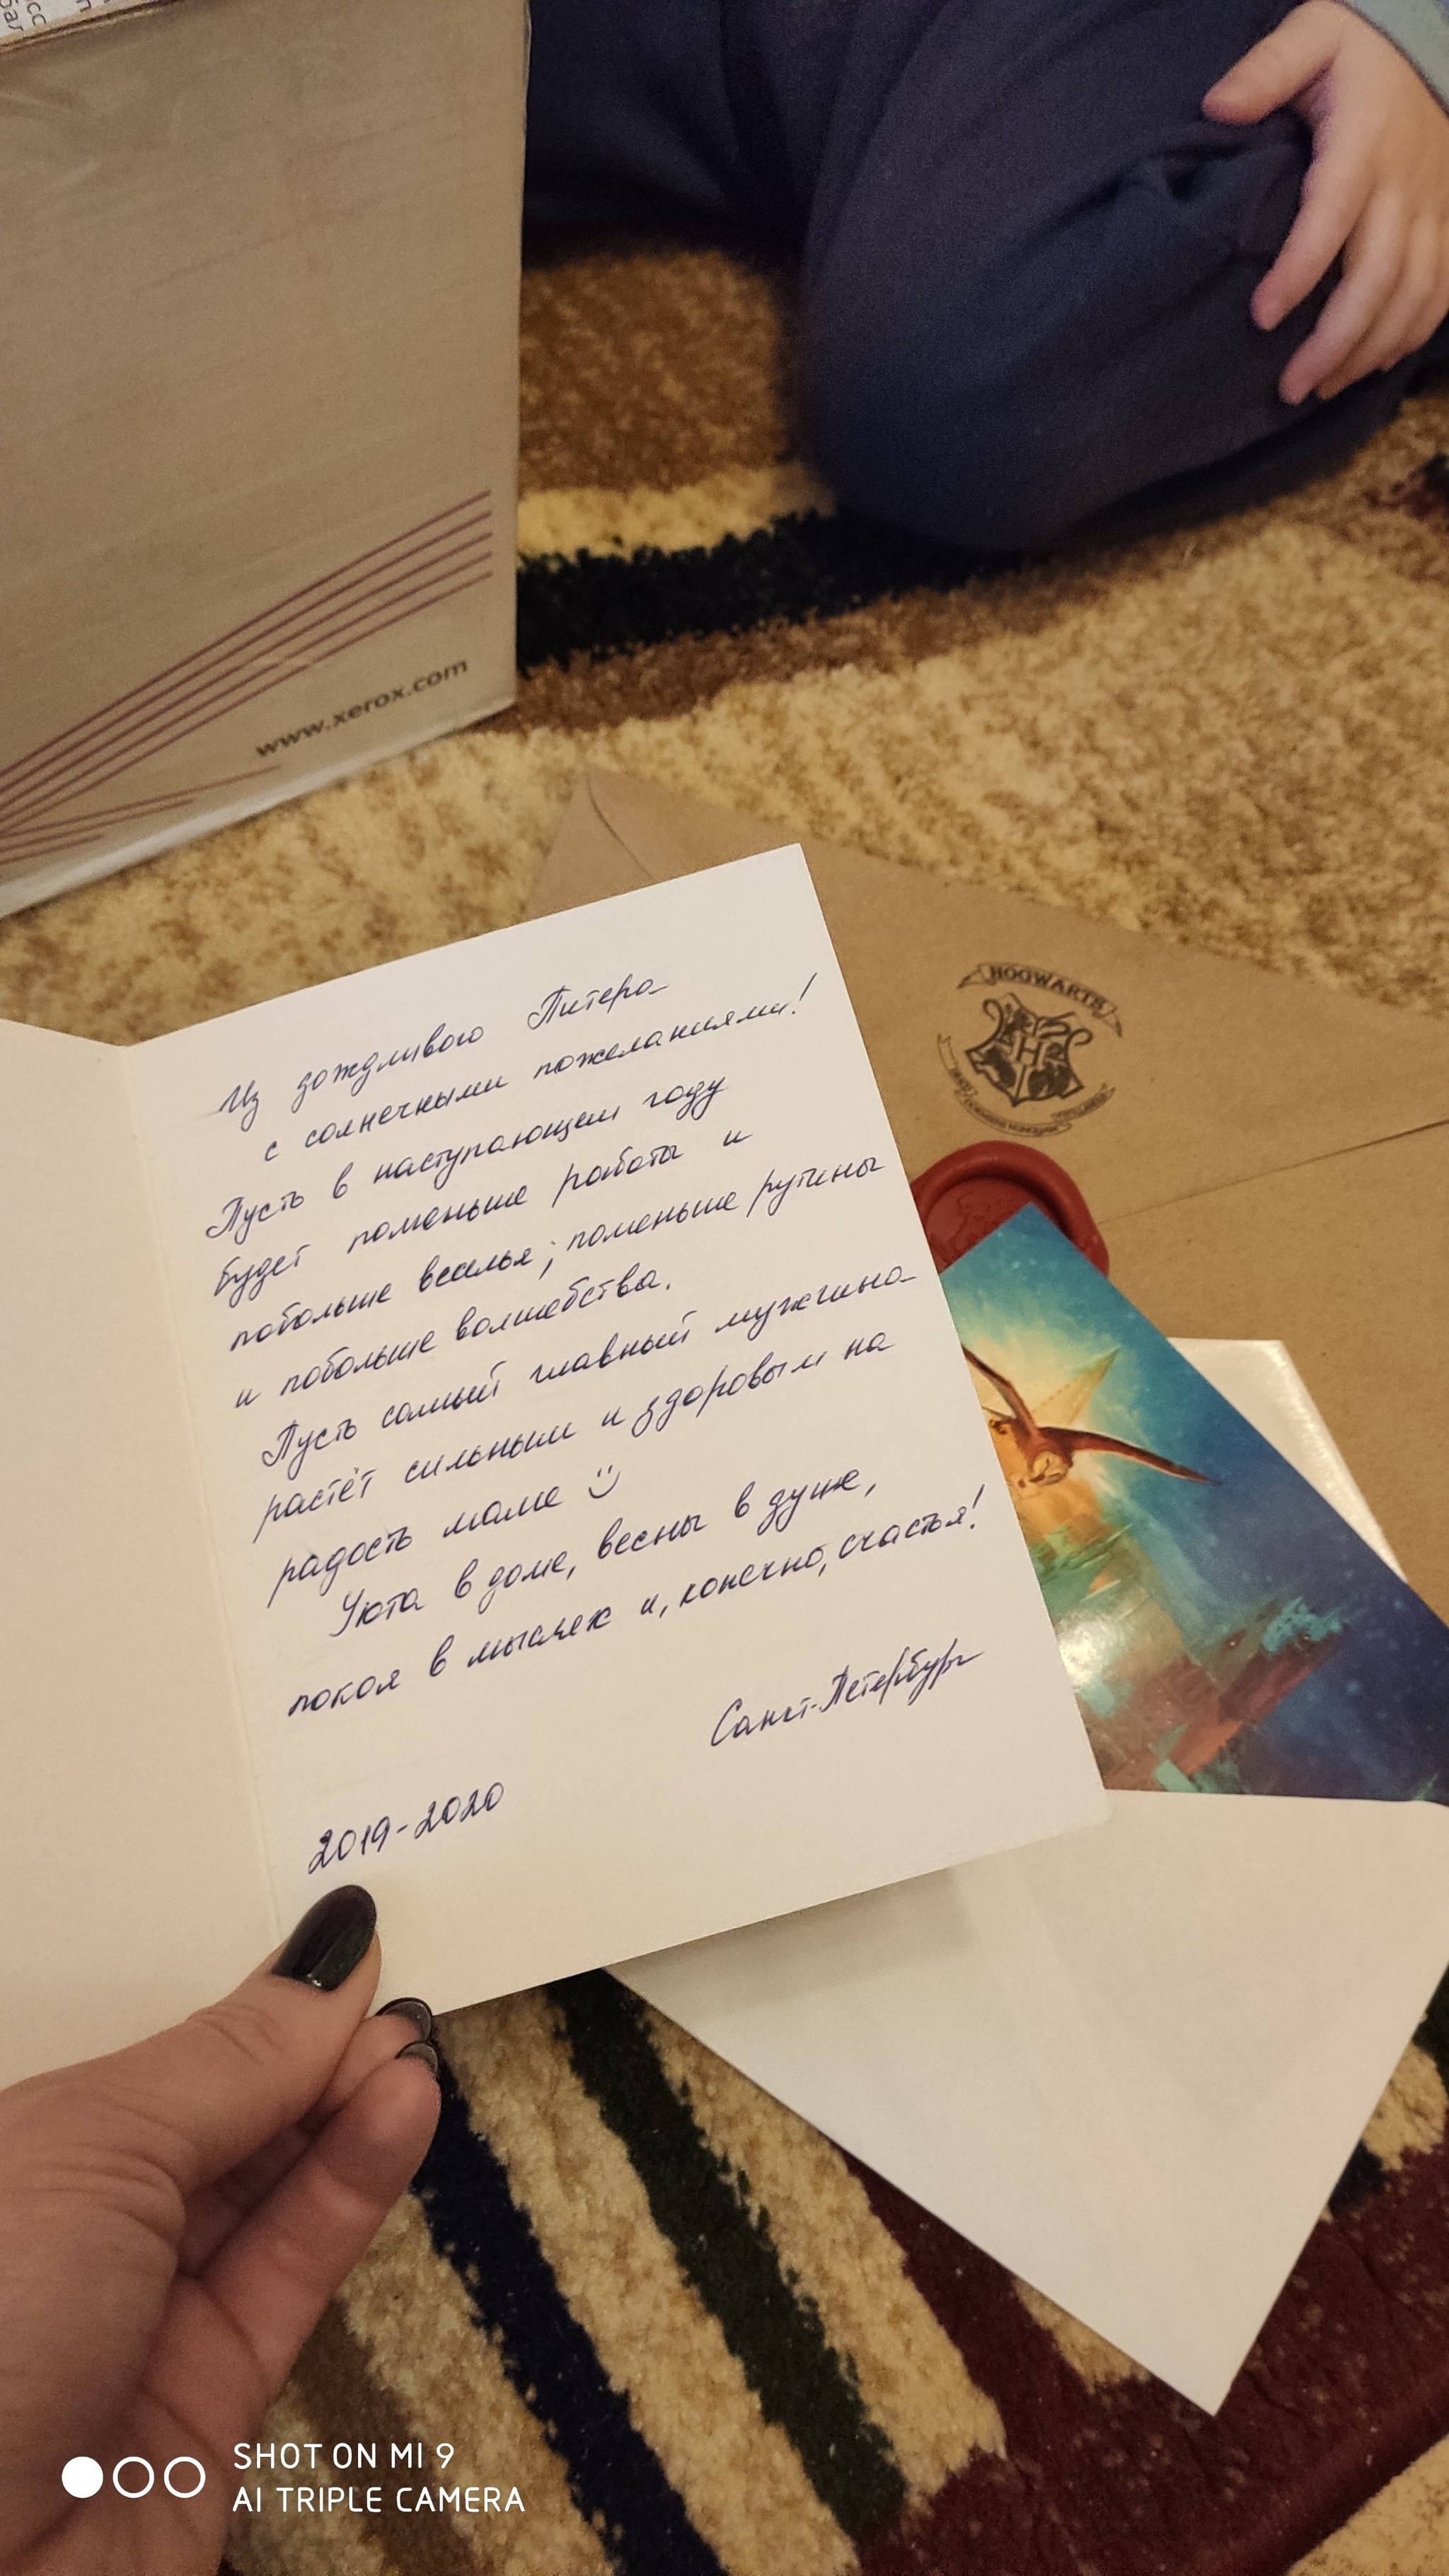 www.xerox.com
HOGWARTS
Из дождливого Питера
с солнечными пожеланиями!
Пусть в наступающем году
будет поменьше работы и
побольше веселья; поменьше рутины
и побольше волшебства.
Пусть самый главный мужчина
растёт сильным и здоровым на
радость маме
Уюта в доме, весны в душе,
покоя в мыслях и, конечно, счастья!
Санкт-Петербург
2019-2020
SHOT ON MI 9
AI TRIPLE CAMERA